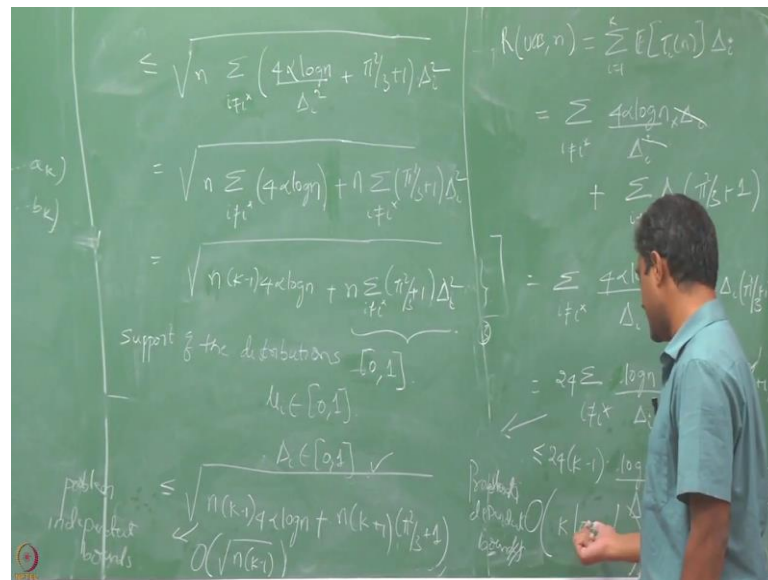 ... aₖ)
bₖ)
≤ √( n ∑_{i≠i*} ( 4αlogn / Δᵢ² + π²/3+1 ) Δᵢ² )
= √( n ∑_{i≠i*} (4αlogn) + n ∑_{i≠i*} (π²/3+1) Δᵢ² )
= √( n(K-1)4αlogn + n ∑_{i≠i*} (π²/3+1) Δᵢ² )
Support of the distributions [0,1].
μᵢ ∈ [0,1]
Δᵢ ∈ [0,1] ✓
problem independent bounds
≤ √( n(K-1)4αlogn + n(K-1)(π²/3+1) )
O(√n(K-1))
R(UCB, n) = ∑_{i=1}^{K} E[Tᵢ(n)] Δᵢ
= ∑_{i≠i*} 4αlogn / Δᵢ² × Δᵢ
+ ∑ Δ (π²/3+1)
= ∑_{i≠i*} 4αl / Δᵢ Δᵢ(π²/3+
= 24 ∑_{i≠i*} logn / Δᵢ
≤ 24(K-1) log
Problem dependent bounds
O( K l